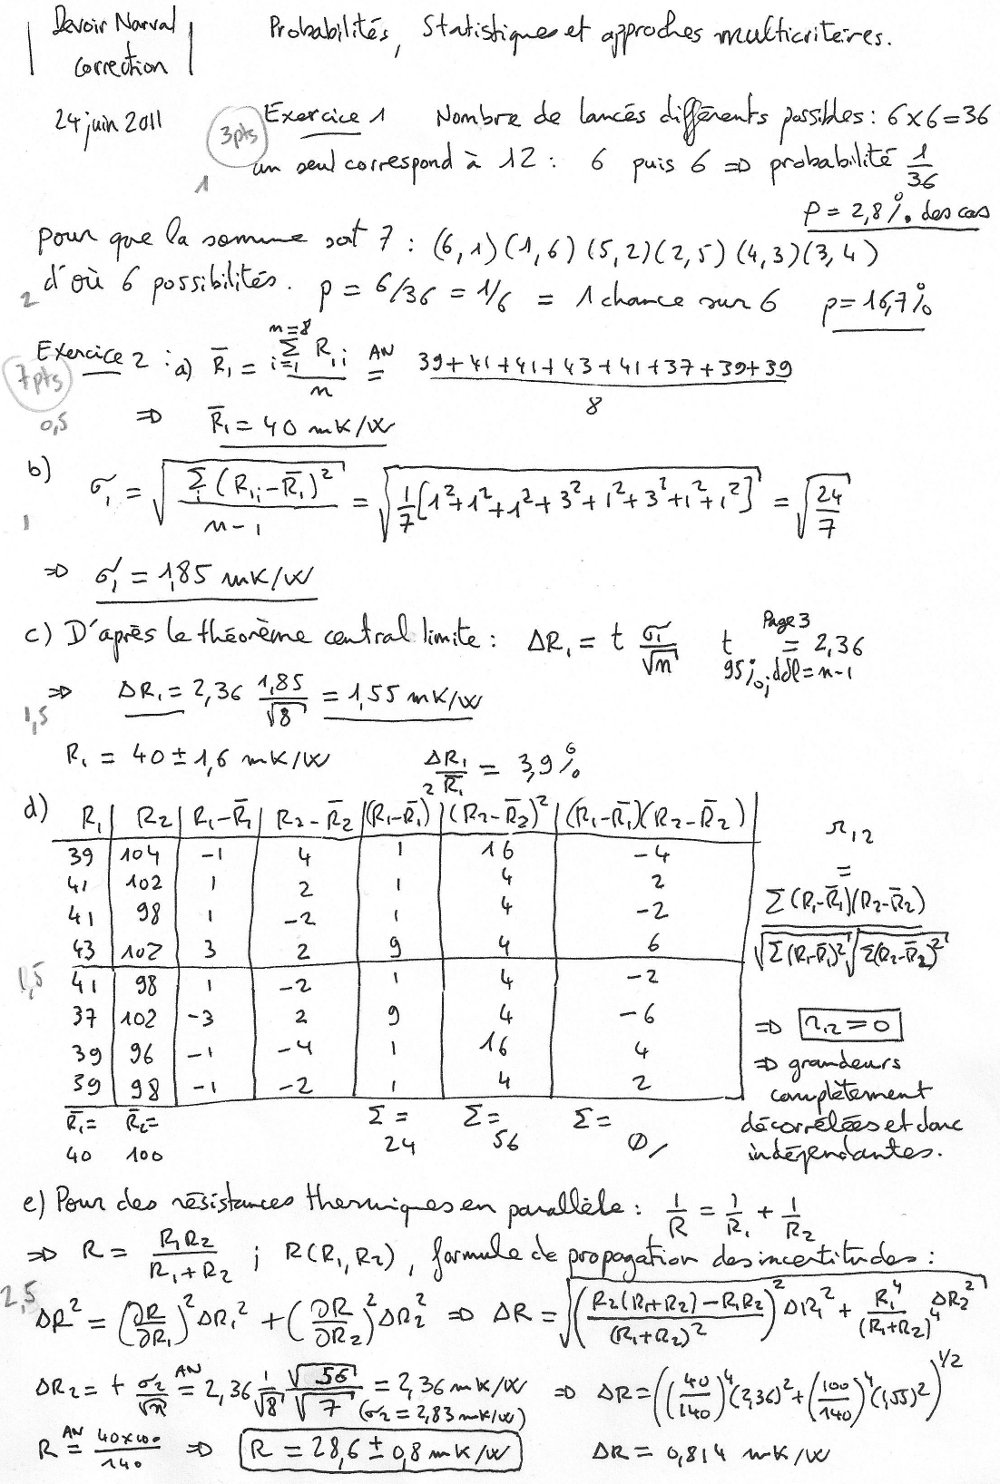 Devoir Narval
Correction
Probabilités, Statistiques et approches multicritères.
24 juin 2011
3pts
Exercice 1 Nombre de lancés différents possibles : 6×6=36
1 un seul correspond à 12 : 6 puis 6 => probabilité 1/36
p = 2,8 % des cas
pour que la somme soit 7 : (6,1) (1,6) (5,2) (2,5) (4,3) (3,4)
2 d'où 6 possibilités. p = 6/36 = 1/6 = 1 chance sur 6 p = 16,7%
Exercice 2 : a) R̄₁ = Σ_{i=1}^{n=8} R₁ᵢ / n =(AN) (39+41+41+43+41+37+39+39) / 8
7pts
0,5 => R̄₁ = 40 mK/W
b) σ₁ = √(Σᵢ (R₁ᵢ-R̄₁)² / (n-1)) = √(1/7 [1²+1²+1²+3²+1²+3²+1²+1²]) = √(24/7)
1
=> σ₁ = 1,85 mK/W
c) D'après le théorème central limite : ΔR₁ = t σ₁/√n t 95%; ddl=n-1 =(Page 3) 2,36
1,5 => ΔR₁ = 2,36 1,85/√8 = 1,55 mK/W
R₁ = 40 ± 1,6 mK/W ΔR₁/R̄₁ = 3,9 %
d) R₁ | R₂ | R₁-R̄₁ | R₂-R̄₂ | (R₁-R̄₁)² | (R₂-R̄₂)² | (R₁-R̄₁)(R₂-R̄₂)
39 104 -1 4 1 16 -4
41 102 1 2 1 4 2
41 98 1 -2 1 4 -2
43 102 3 2 9 4 6
1,5
41 98 1 -2 1 4 -2
37 102 -3 2 9 4 -6
39 96 -1 -4 1 16 4
39 98 -1 -2 1 4 2
R̄₁= R̄₂= Σ= Σ= Σ=
40 100 24 56 0
r₁₂
=
Σ(R₁-R̄₁)(R₂-R̄₂) / √Σ(R₁-R̄₁)² √Σ(R₂-R̄₂)²
=> r₁₂=0
=> grandeurs
complètement
décorrélées et donc
indépendantes.
e) Pour des résistances thermiques en parallèle : 1/R = 1/R₁ + 1/R₂
=> R = R₁R₂/(R₁+R₂) ; R(R₁,R₂), formule de propagation des incertitudes :
2,5
ΔR² = (∂R/∂R₁)² ΔR₁² + (∂R/∂R₂)² ΔR₂² => ΔR = √(((R₂(R₁+R₂)-R₁R₂)/(R₁+R₂)²)² ΔR₁² + R₁⁴/(R₁+R₂)⁴ ΔR₂²)
ΔR₂ = t σ₂/√n =(AN) 2,36 1/√8 √56/√7 = 2,36 mK/W => ΔR = ((40/140)⁴ (2,36)² + (100/140)⁴ (1,55)²)^1/2
(σ₂ = 2,83 mK/W)
R =(AN) 40×100/140 => R = 28,6 ± 0,8 mK/W ΔR = 0,814 mK/W